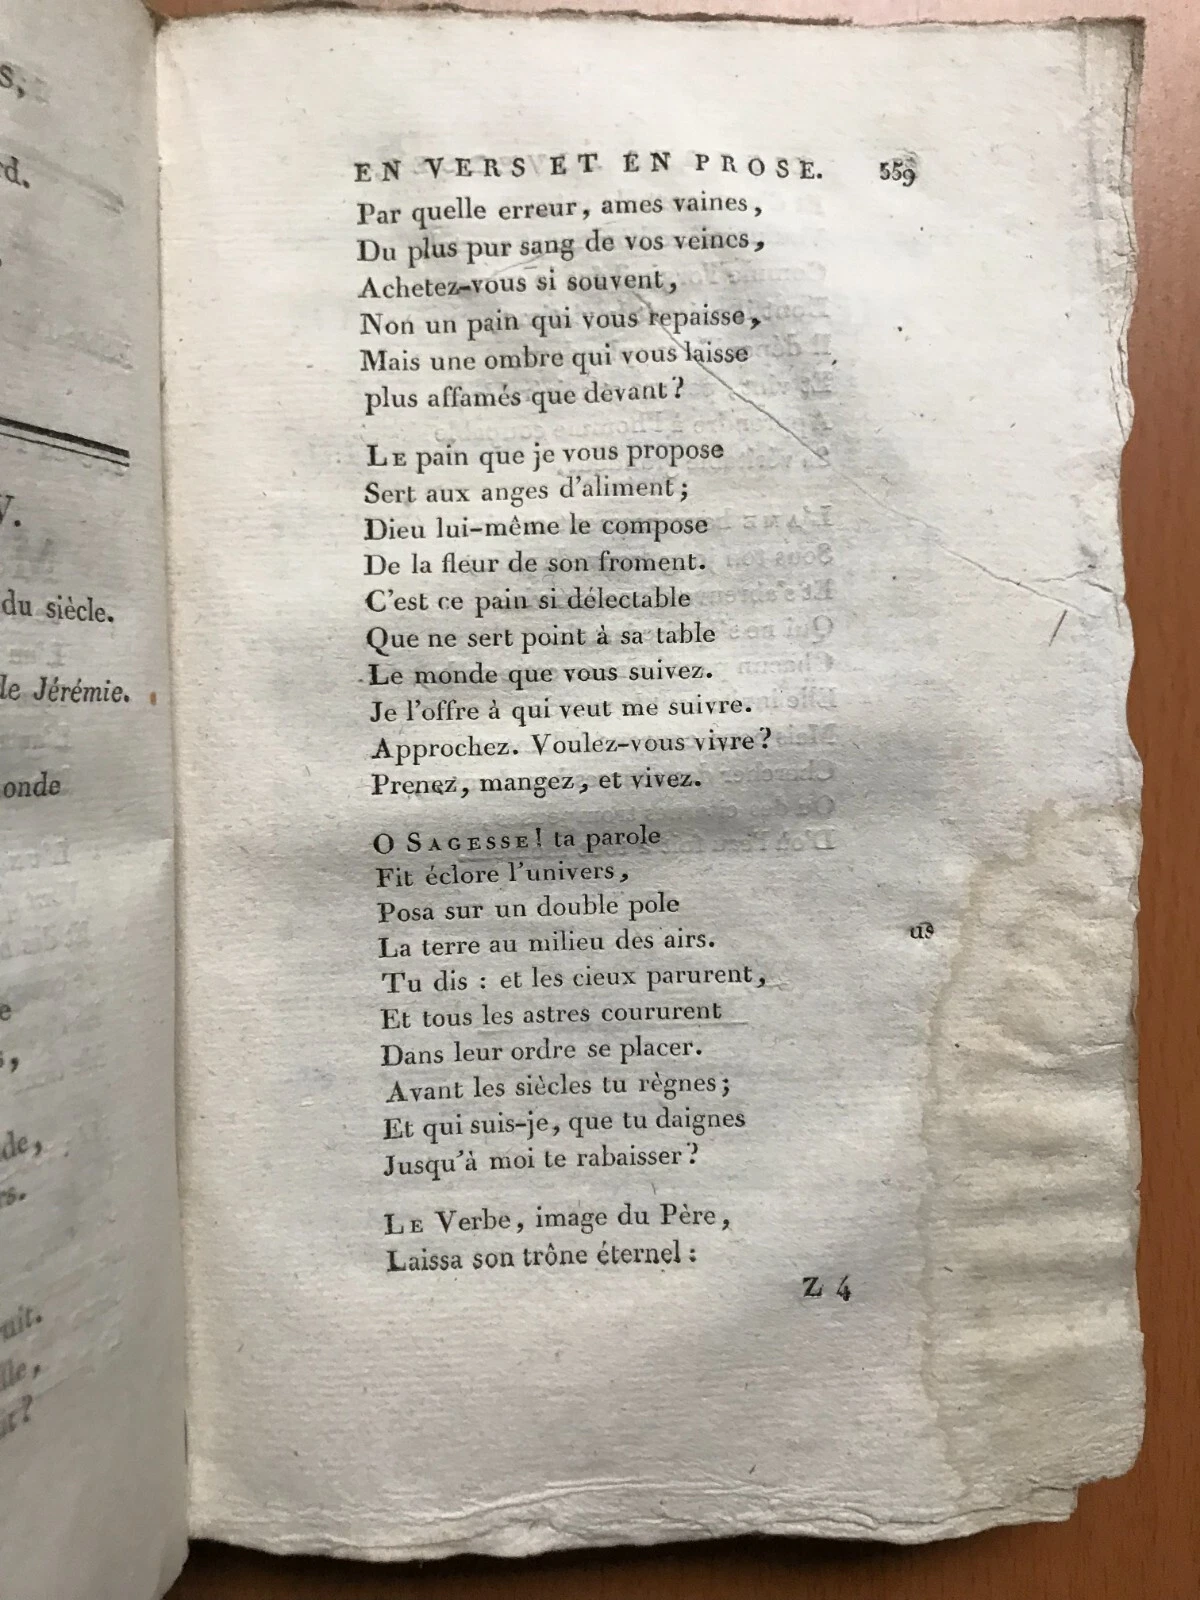 s,
rd.
V.
du siècle.
de Jérémie.
onde
e
s,
de,
rs.
uit.
lle,
it?
EN VERS ET EN PROSE. 559
Par quelle erreur, ames vaines,
Du plus pur sang de vos veines,
Achetez-vous si souvent,
Non un pain qui vous repaisse,
Mais une ombre qui vous laisse
plus affamés que devant?
LE pain que je vous propose
Sert aux anges d'aliment;
Dieu lui-même le compose
De la fleur de son froment.
C'est ce pain si délectable
Que ne sert point à sa table
Le monde que vous suivez.
Je l'offre à qui veut me suivre.
Approchez. Voulez-vous vivre?
Prenez, mangez, et vivez.
O SAGESSE! ta parole
Fit éclore l'univers,
Posa sur un double pole
La terre au milieu des airs.
us
Tu dis : et les cieux parurent,
Et tous les astres coururent
Dans leur ordre se placer.
Avant les siècles tu règnes;
Et qui suis-je, que tu daignes
Jusqu'à moi te rabaisser?
LE Verbe, image du Père,
Laissa son trône éternel:
Z 4